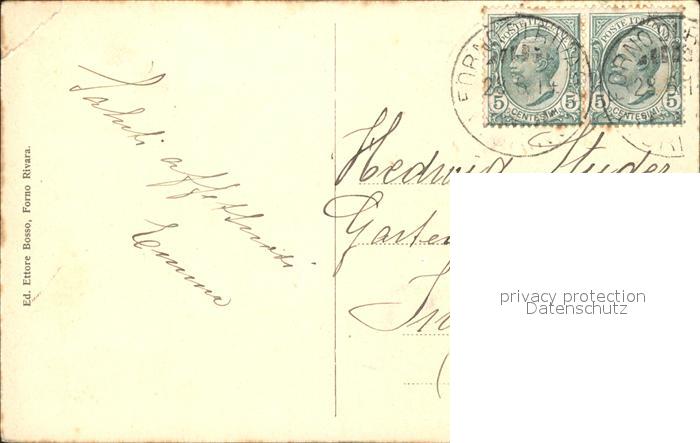 Ed. Ettore Bosso, Forno Rivara.
Saluti affettuosi
Emma
POSTE ITALIANE
5 5
CENTESIMI
POSTE ITALIANE
5 5
CENTESIMI
FORNO
Hedwig Studer
Garten
privacy protection
Datenschutz